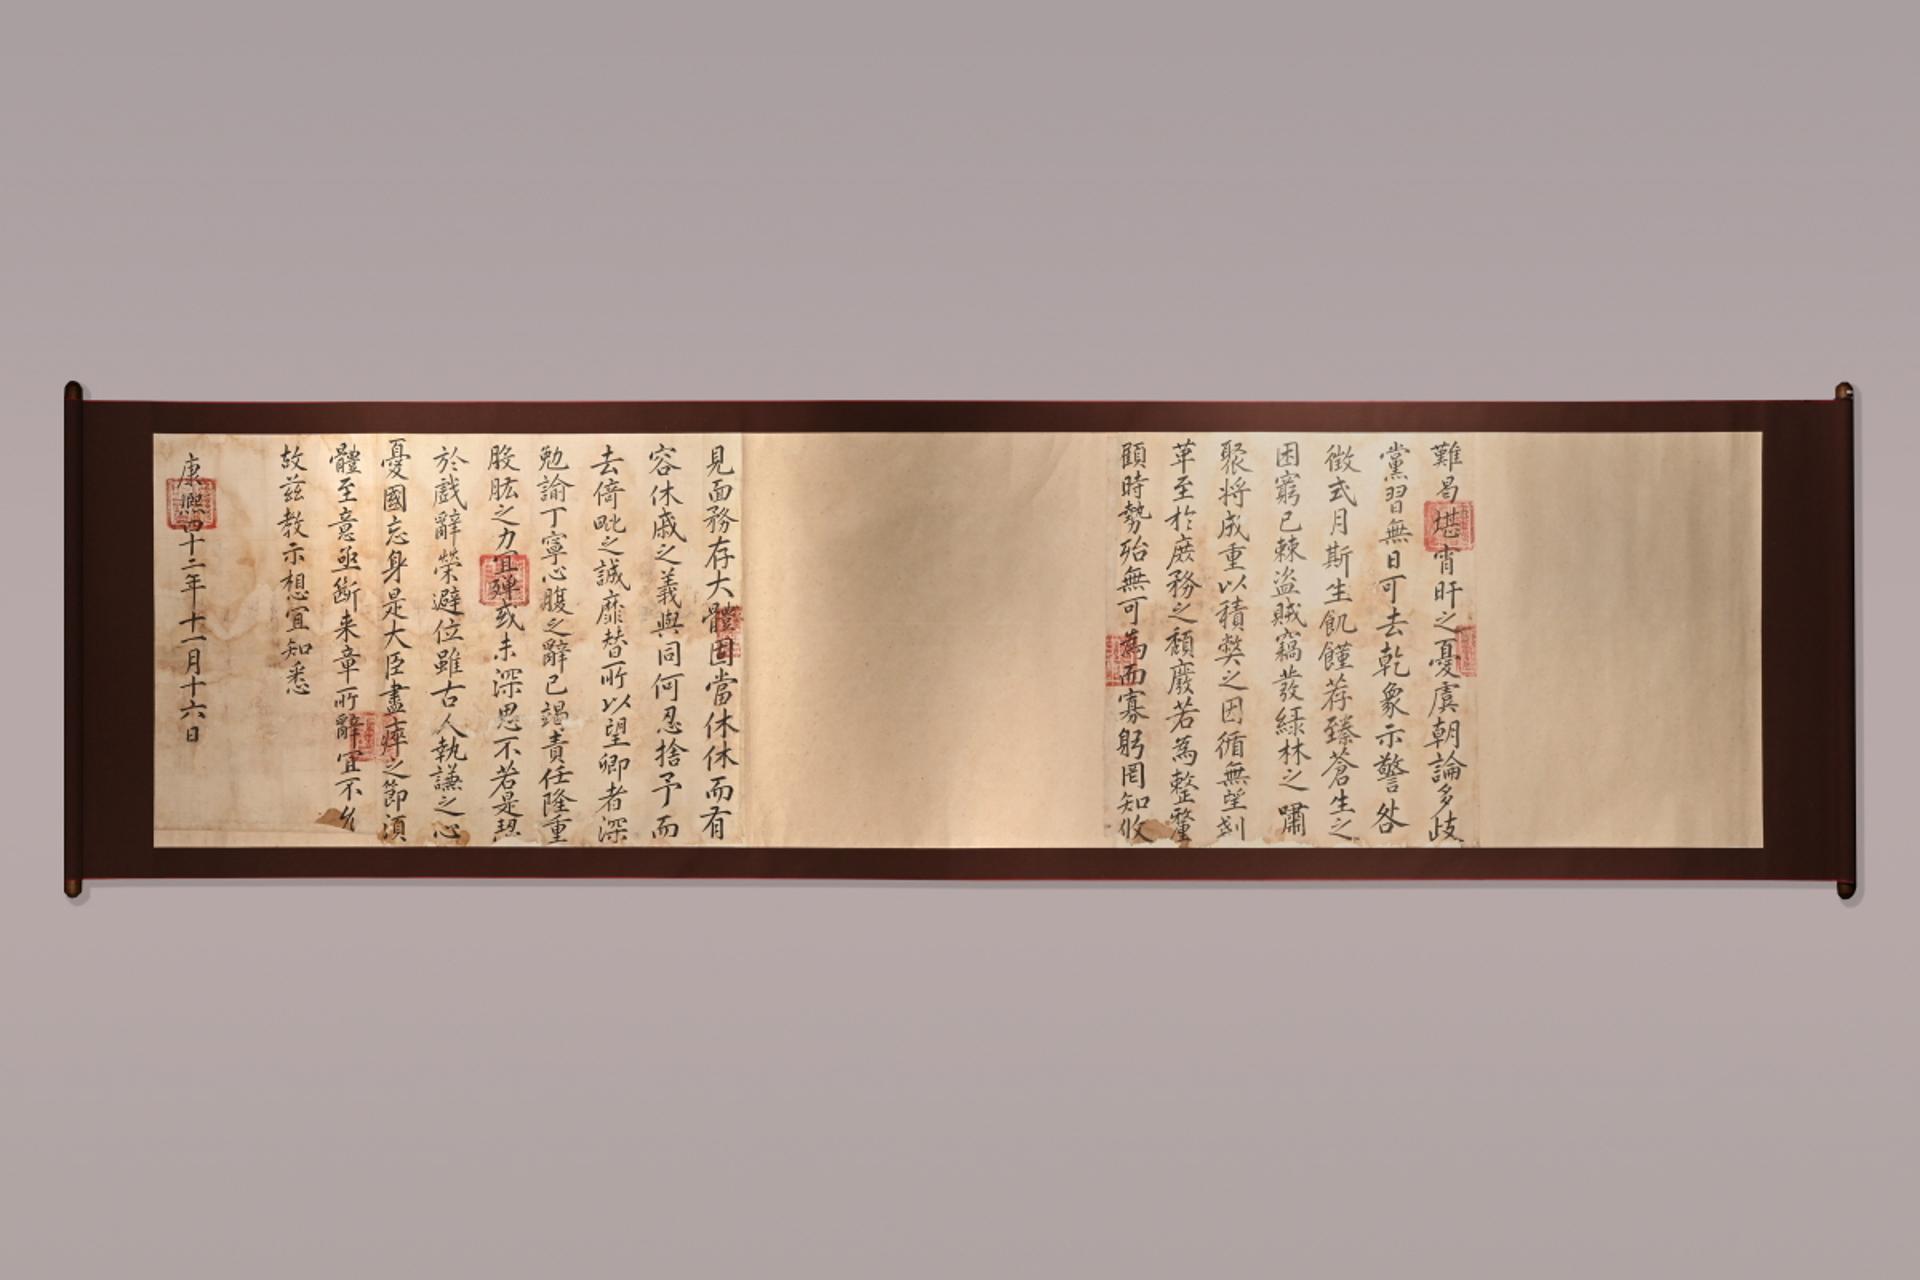 難曷堪宵旰之憂虞朝論多歧
黨習無日可去乾象示警咎
徵式月斯生飢饉荐臻蒼生之
困窮已棘盜賊竊發綠林之嘯
聚將成重以積獘之因循無望剗
革至於庶務之頹廢若為整釐
顧時勢殆無可為而寡躬罔知攸
見面務存大體固當休休而有
容休戚之義與同何忍捨予而
去倚毗之誠靡替所以望卿者深
勉諭丁寧心腹之辭已竭責任隆重
股肱之力宜殫或未深思不若是恝
於戲辭榮避位雖古人執謙之心
憂國忘身是大臣盡瘁之節須
體至意亟斷来章所辭宜不允
故茲教示想宜知悉
康熙四十二年十一月十六日